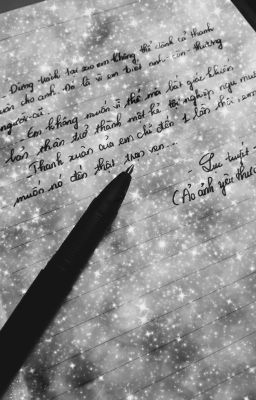 Đừng trách tại sao em không thể dành cả thanh
xuân cho anh. Đó là vì em biết anh còn thương
người cũ.
Em không muốn vì thế mà bất giác khiến
bản thân trở thành một kẻ tội nghiệp
Thanh xuân của em chỉ đến 1 lần thôi, em
muốn nó đến thật trọn ven...
- Lục tuyết -
(Ảo ảnh yêu thươ